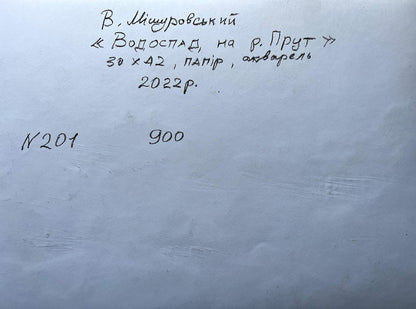 В. Мішуровський
« Водоспад на р. Прут »
30 х 42, папір, акварель
2022р.
N201 900